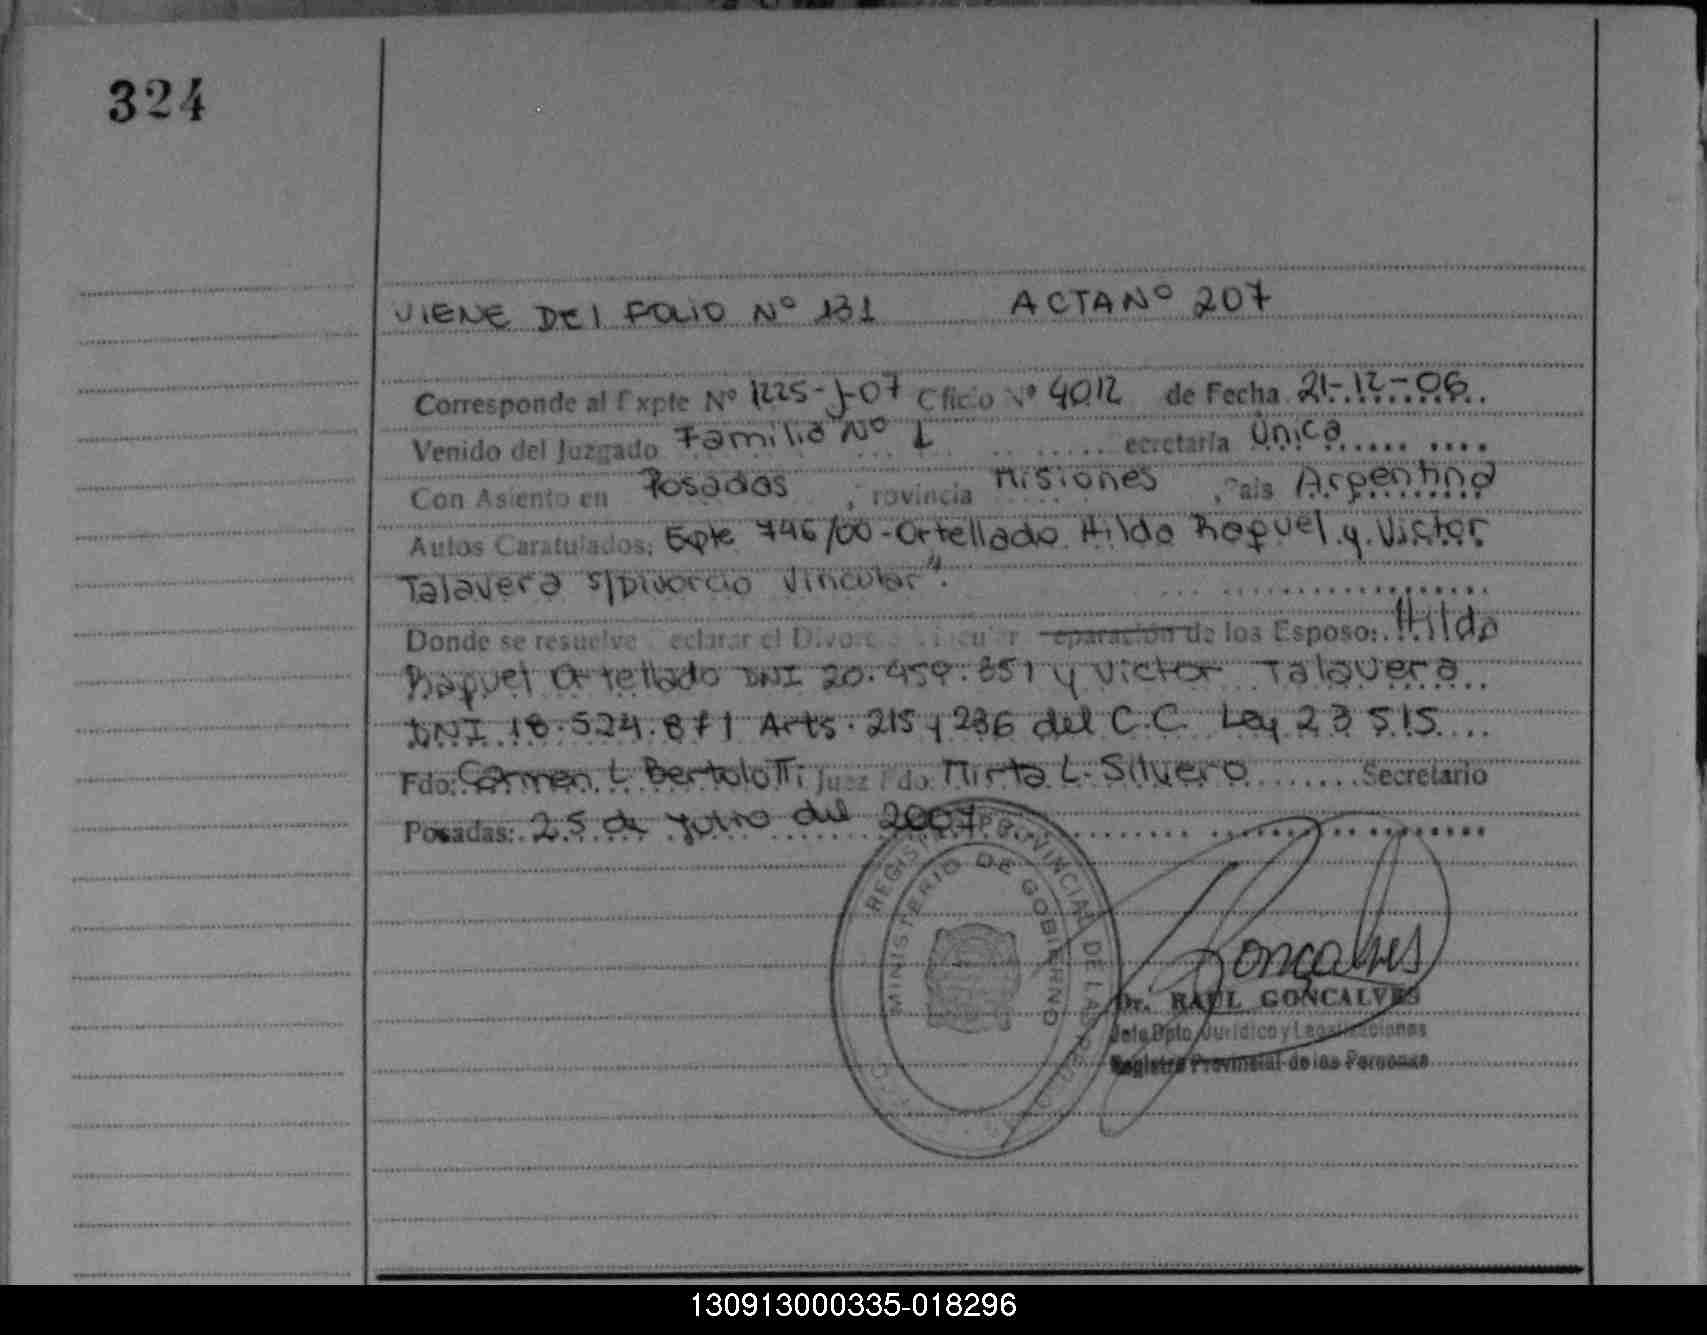 324
VIENE DEl FOLIO Nº 131 ACTA Nº 207
Corresponde al Expte Nº 1225-J-07 Oficio Nº 4012 de Fecha 21-12-06
Venido del Juzgado Familia Nº 1 ecretaría Única
Con Asiento en Posadas , rovincia Misiones , País Argentina
Autos Caratulados: Expte 746/00-Ortellado Hilda Raquel y Victor
Talavera s/Divorcio Vincular".
Donde se resuelve eclarar el Divorc incular eparación de los Esposo: Hilda
Raquel Ortellado DNI 20.459.851 y Victor Talavera
DNI 18.524.871 Arts. 215 y 236 del C.C. Ley 23515
Fdo: Carmen L. Bertolotti Juez Fdo: Mirta L. Silvero Secretario
Posadas: 25 de Julio del 2007
REGIST PROVINCIAL DE LAS PE
MINISTERIO DE GOBIERNO
Gonçalves
Dr. RAUL GONCALVES
Jefe Dpto. Jurídico y Legalizaciones
Registro Provincial de las Personas
130913000335-018296